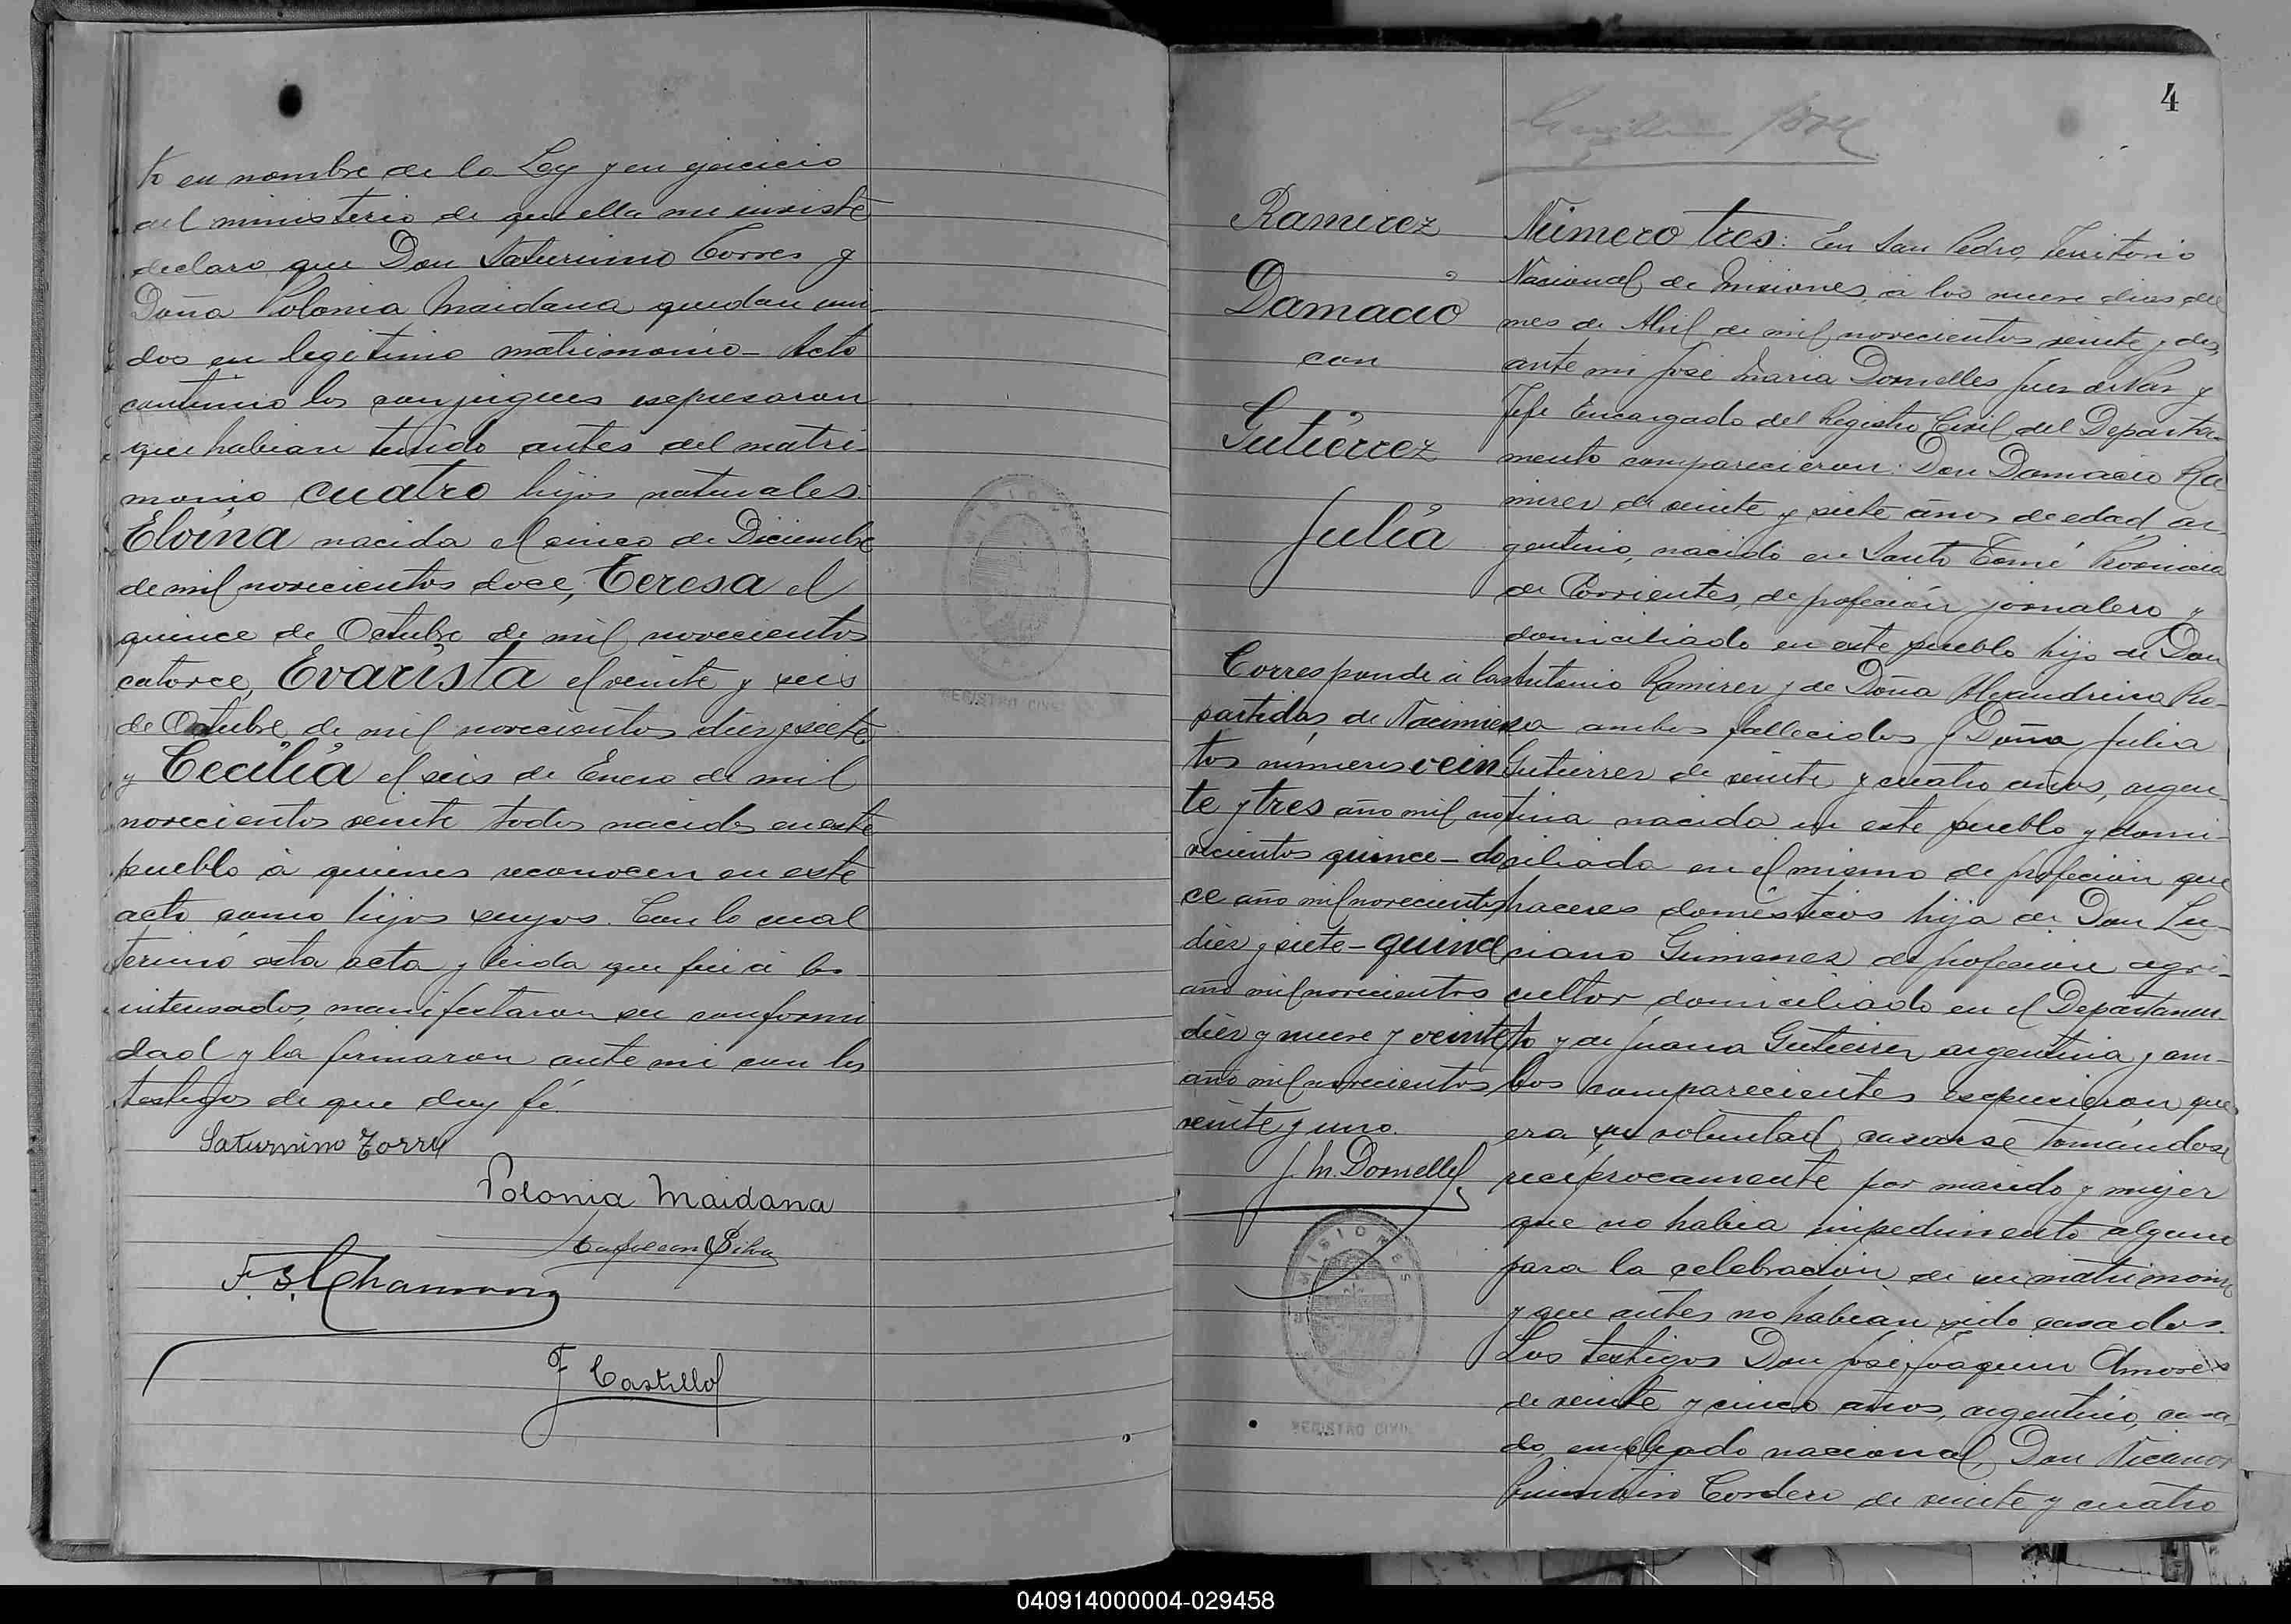 to en nombre de la Ley y en ejercicio
del ministerio de que ella me inviste
declaro que Don Saturnino Torres y
Doña Polonia Maidana quedan uni-
dos en legitimo matrimonio - Acto
continuo los conyugues expresaron
que habian tenido antes del matri-
monio cuatro hijos naturales:
Elvina nacida el cinco de Diciembre
de mil novecientos doce, Teresa el
quince de Octubre de mil novecientos
catorce, Evarista el veinte y seis
de Octubre de mil novecientos diez y siete
y Cecilia el seis de Enero de mil
novecientos veinte todos nacidos en este
pueblo à quienes reconocen en este
acto como hijos suyos. Con lo cual
terminó esta acta y leida que fué à los
interesados, manifestaron su conformi
dad y la firmaron ante mi con los
testigos de que doy fé.
Saturnino Torres
Polonia Maidana
Napoleon Silva
F. S.
F Castillo
MISIONES
REGISTRO CIVIL
4
Ramirez
Damacio
con
Gutiérrez
Julia
Corresponde à las
partidas de Nacimien
tos números vein
te y tres año mil no
vecientos quince - do
ce año mil novecientos
diez y siete - quince
año mil novecientos
diez y nueve y veinte
año mil novecientos
veinte y uno.
J. M. Dornelles
MISIONES
REGISTRO CIVIL
Número tres: En San Pedro, Territorio
Nacional de Misiones, à los nueve dias del
mes de Abril de mil novecientos veinte y dos,
ante mi José Maria Dornelles Juez de Paz y
Jefe Encargado del Registro Civil del Departa-
mento comparecieron: Don Damacio Ra
mirez de veinte y siete años de edad, ar-
gentino, nacido en Santo Tomé Provincia
de Corrientes, de profeción jornalero y
domiciliado en este pueblo hijo de Don
Antonio Ramirez y de Doña Alejandrina Ro-
sa ambos fallecidos y Doña Julia
Gutierrez de veinte y cuatro años, argen-
tina nacida en este pueblo y domi-
ciliada en el mismo de profeción que
haceres domésticos hija de Don Lu-
ciano Gimenez de profecion agri-
cultor domiciliado en el Departamen-
to y de Juana Gutierrez, argentina y am-
bos comparecientes expusieron que
era su voluntad casarse tomándose
reciprocamente por marido y mujer
que no habia impedimento alguno
para la celebración de su matrimonio
y que antes no habian sido casados.
Los testigos Don José Joaquin Amores
de veinte y cinco años, argentino, casa-
do, empleado nacional, Don Nicanor
Cordero de veinte y cuatro
040914000004-029458